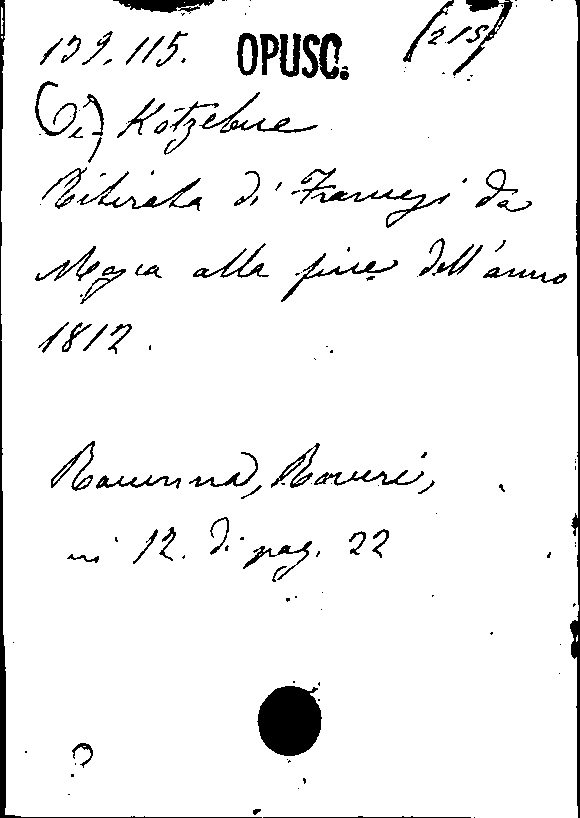 139.115. OPUSC. (215)
(Di) Kotzebue
Ritirata di Francesi da
Mosca alla fine dell'anno
1812.
Ravenna, Roveri,
in 12. di pag. 22